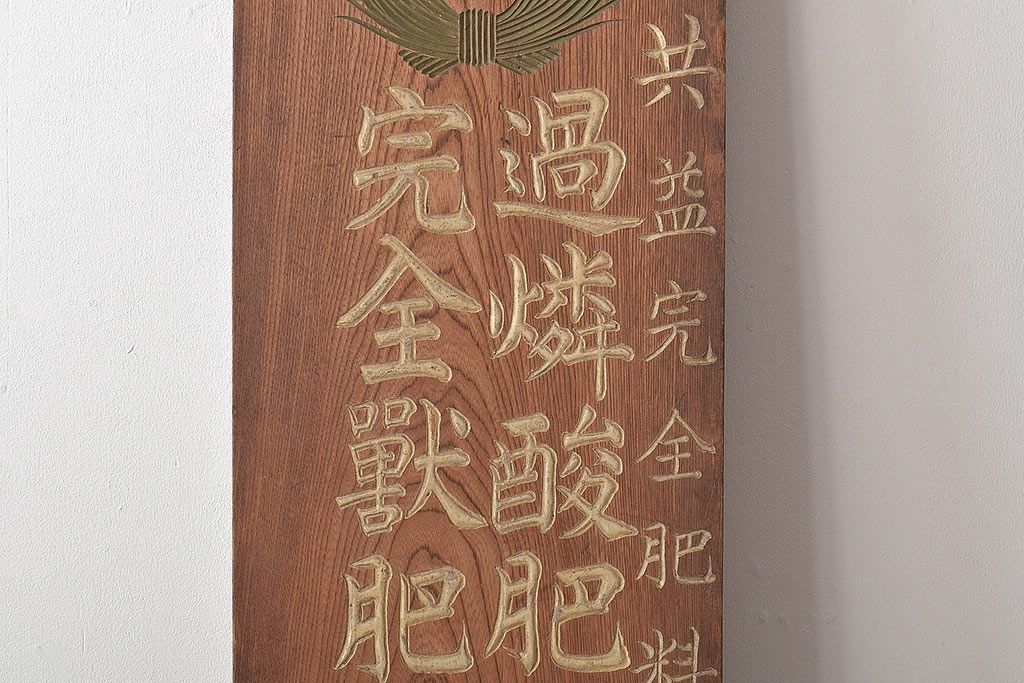 共益完全肥料
過燐酸肥
完全獸肥